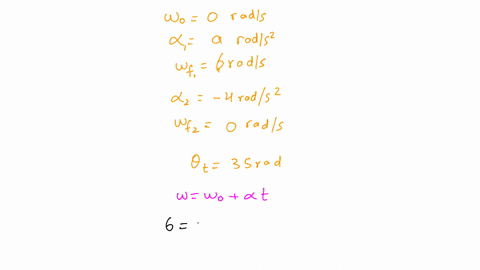 ω₀ = 0 rad/s
α₁ = a rad/s²
ω_f₁ = 6 rad/s
α₂ = -4 rad/s²
ω_f₂ = 0 rad/s
θ_t = 35 rad
ω = ω₀ + α t
6 =